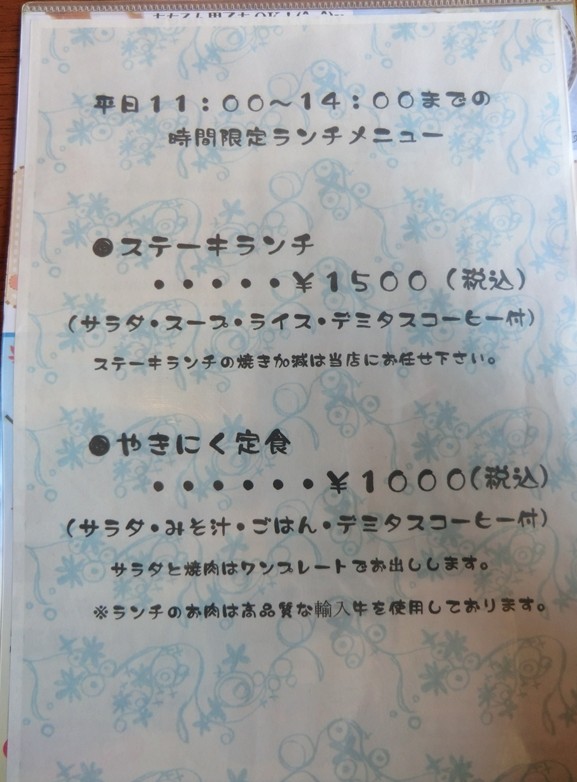 平日11:00～14:00までの
時間限定ランチメニュー
●ステーキランチ
・・・・・¥1500(税込)
(サラダ・スープ・ライス・デミタスコーヒー付)
ステーキランチの焼き加減は当店にお任せ下さい。
●やきにく定食
・・・・・・¥1000(税込)
(サラダ・みそ汁・ごはん・デミタスコーヒー付)
サラダと焼肉はワンプレートでお出しします。
※ランチのお肉は高品質な輸入牛を使用しております。